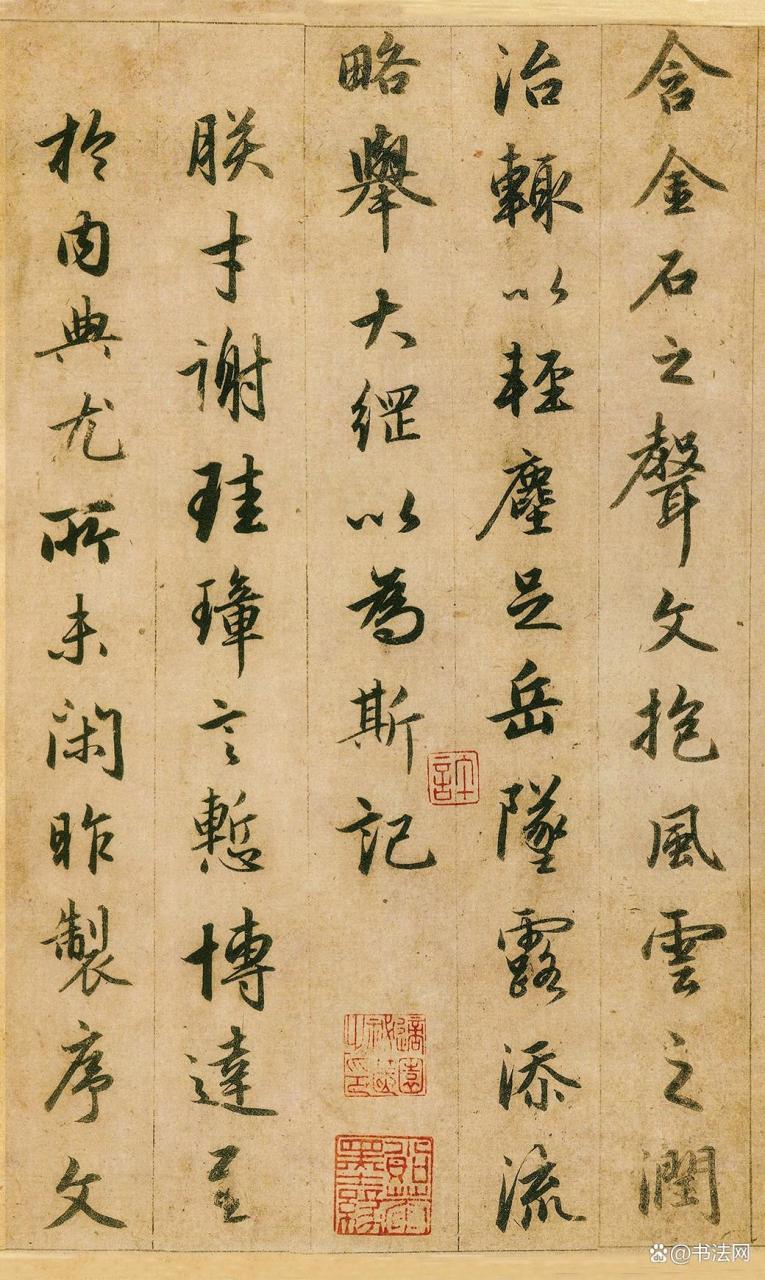 含金石之聲文抱風雲之潤
治輙以輕塵足岳墜露添流
略舉大綱以為斯記
朕才謝珪璋言慙博達至
於内典尤所未閑昨製序文
許
@书法网